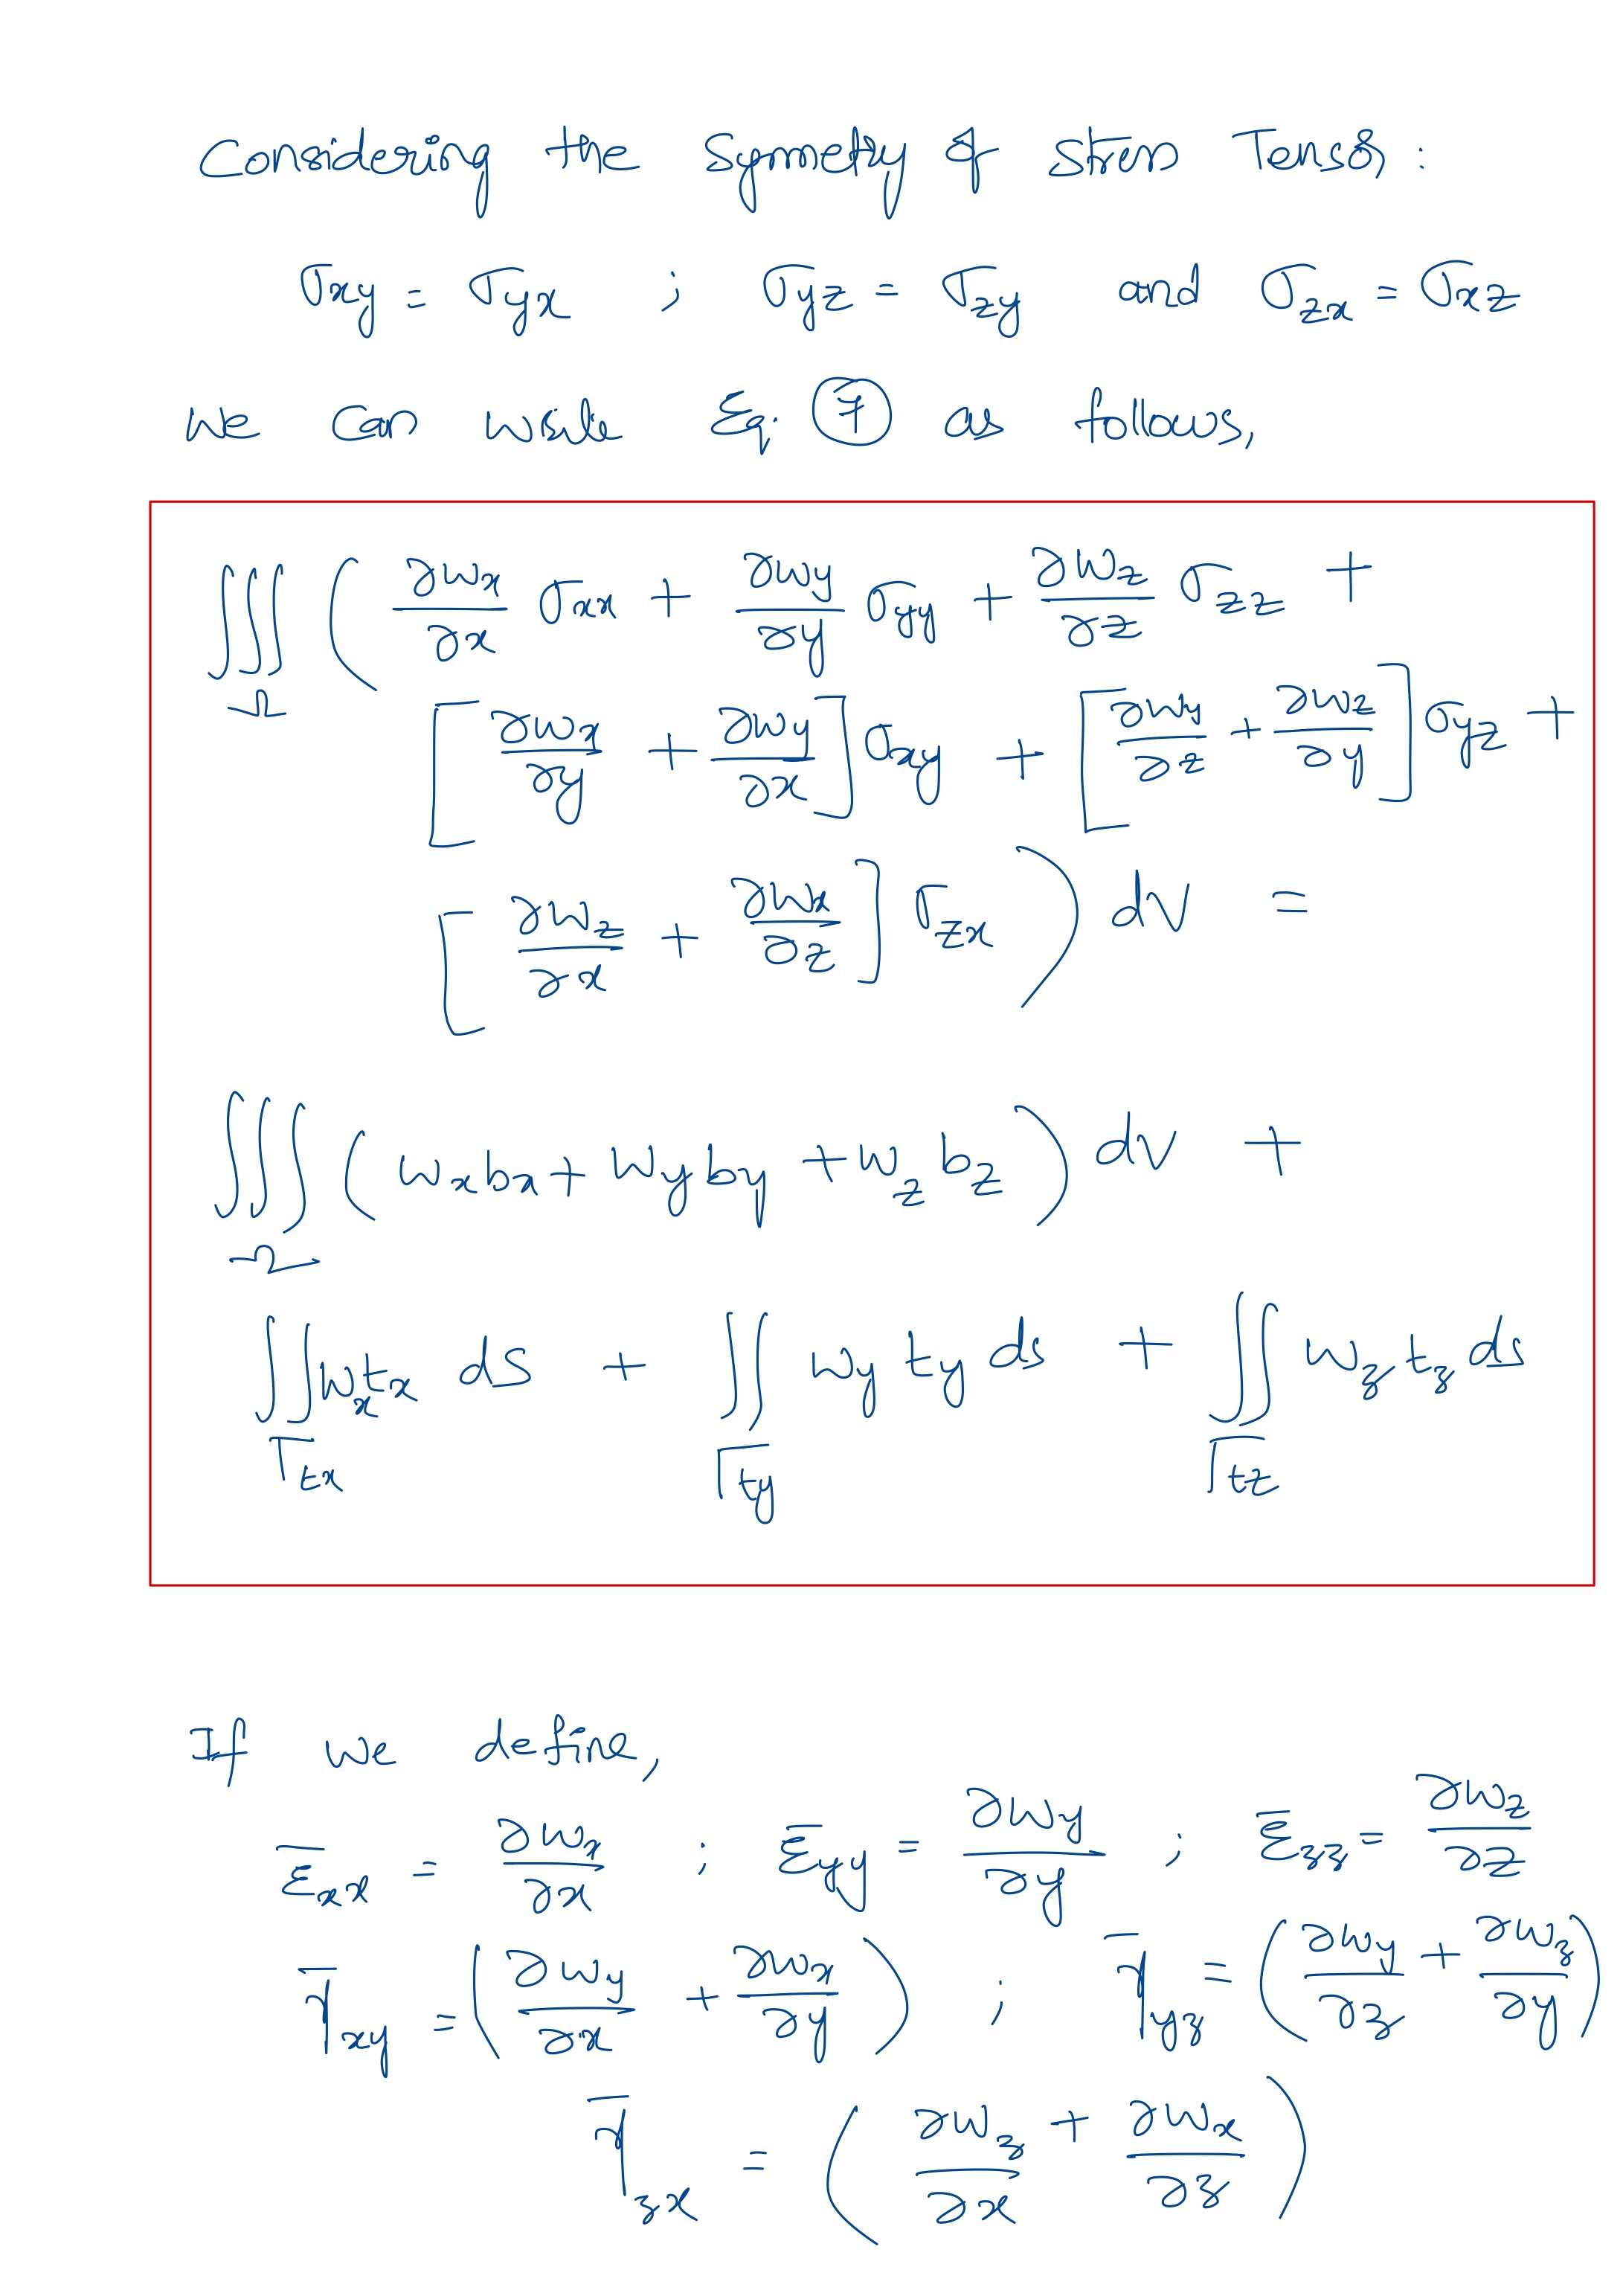 Considering the Symmetry of stress Tensor :
σxy = σyx ; σyz = σzy and σzx = σxz
we can write Eq. ⑦ as follows,
∭_Ω ( ∂wx/∂x σxx + ∂wy/∂y σyy + ∂wz/∂z σzz +
[ ∂wx/∂y + ∂wy/∂x ] σxy + [ ∂wy/∂z + ∂wz/∂y ] σyz +
[ ∂wz/∂x + ∂wx/∂z ] σzx ) dv =
∭_Ω ( wx bx + wy by + wz bz ) dv +
∬_Γtx wx tx ds + ∬_Γty wy ty ds + ∬_Γtz wz tz ds
If we define,
ε̄xx = ∂wx/∂x ; ε̄yy = ∂wy/∂y ; ε̄zz = ∂wz/∂z
γ̄xy = ( ∂wy/∂x + ∂wx/∂y ) ; γ̄yz = ( ∂wy/∂z + ∂wz/∂y )
γ̄zx = ( ∂wz/∂x + ∂wx/∂z )